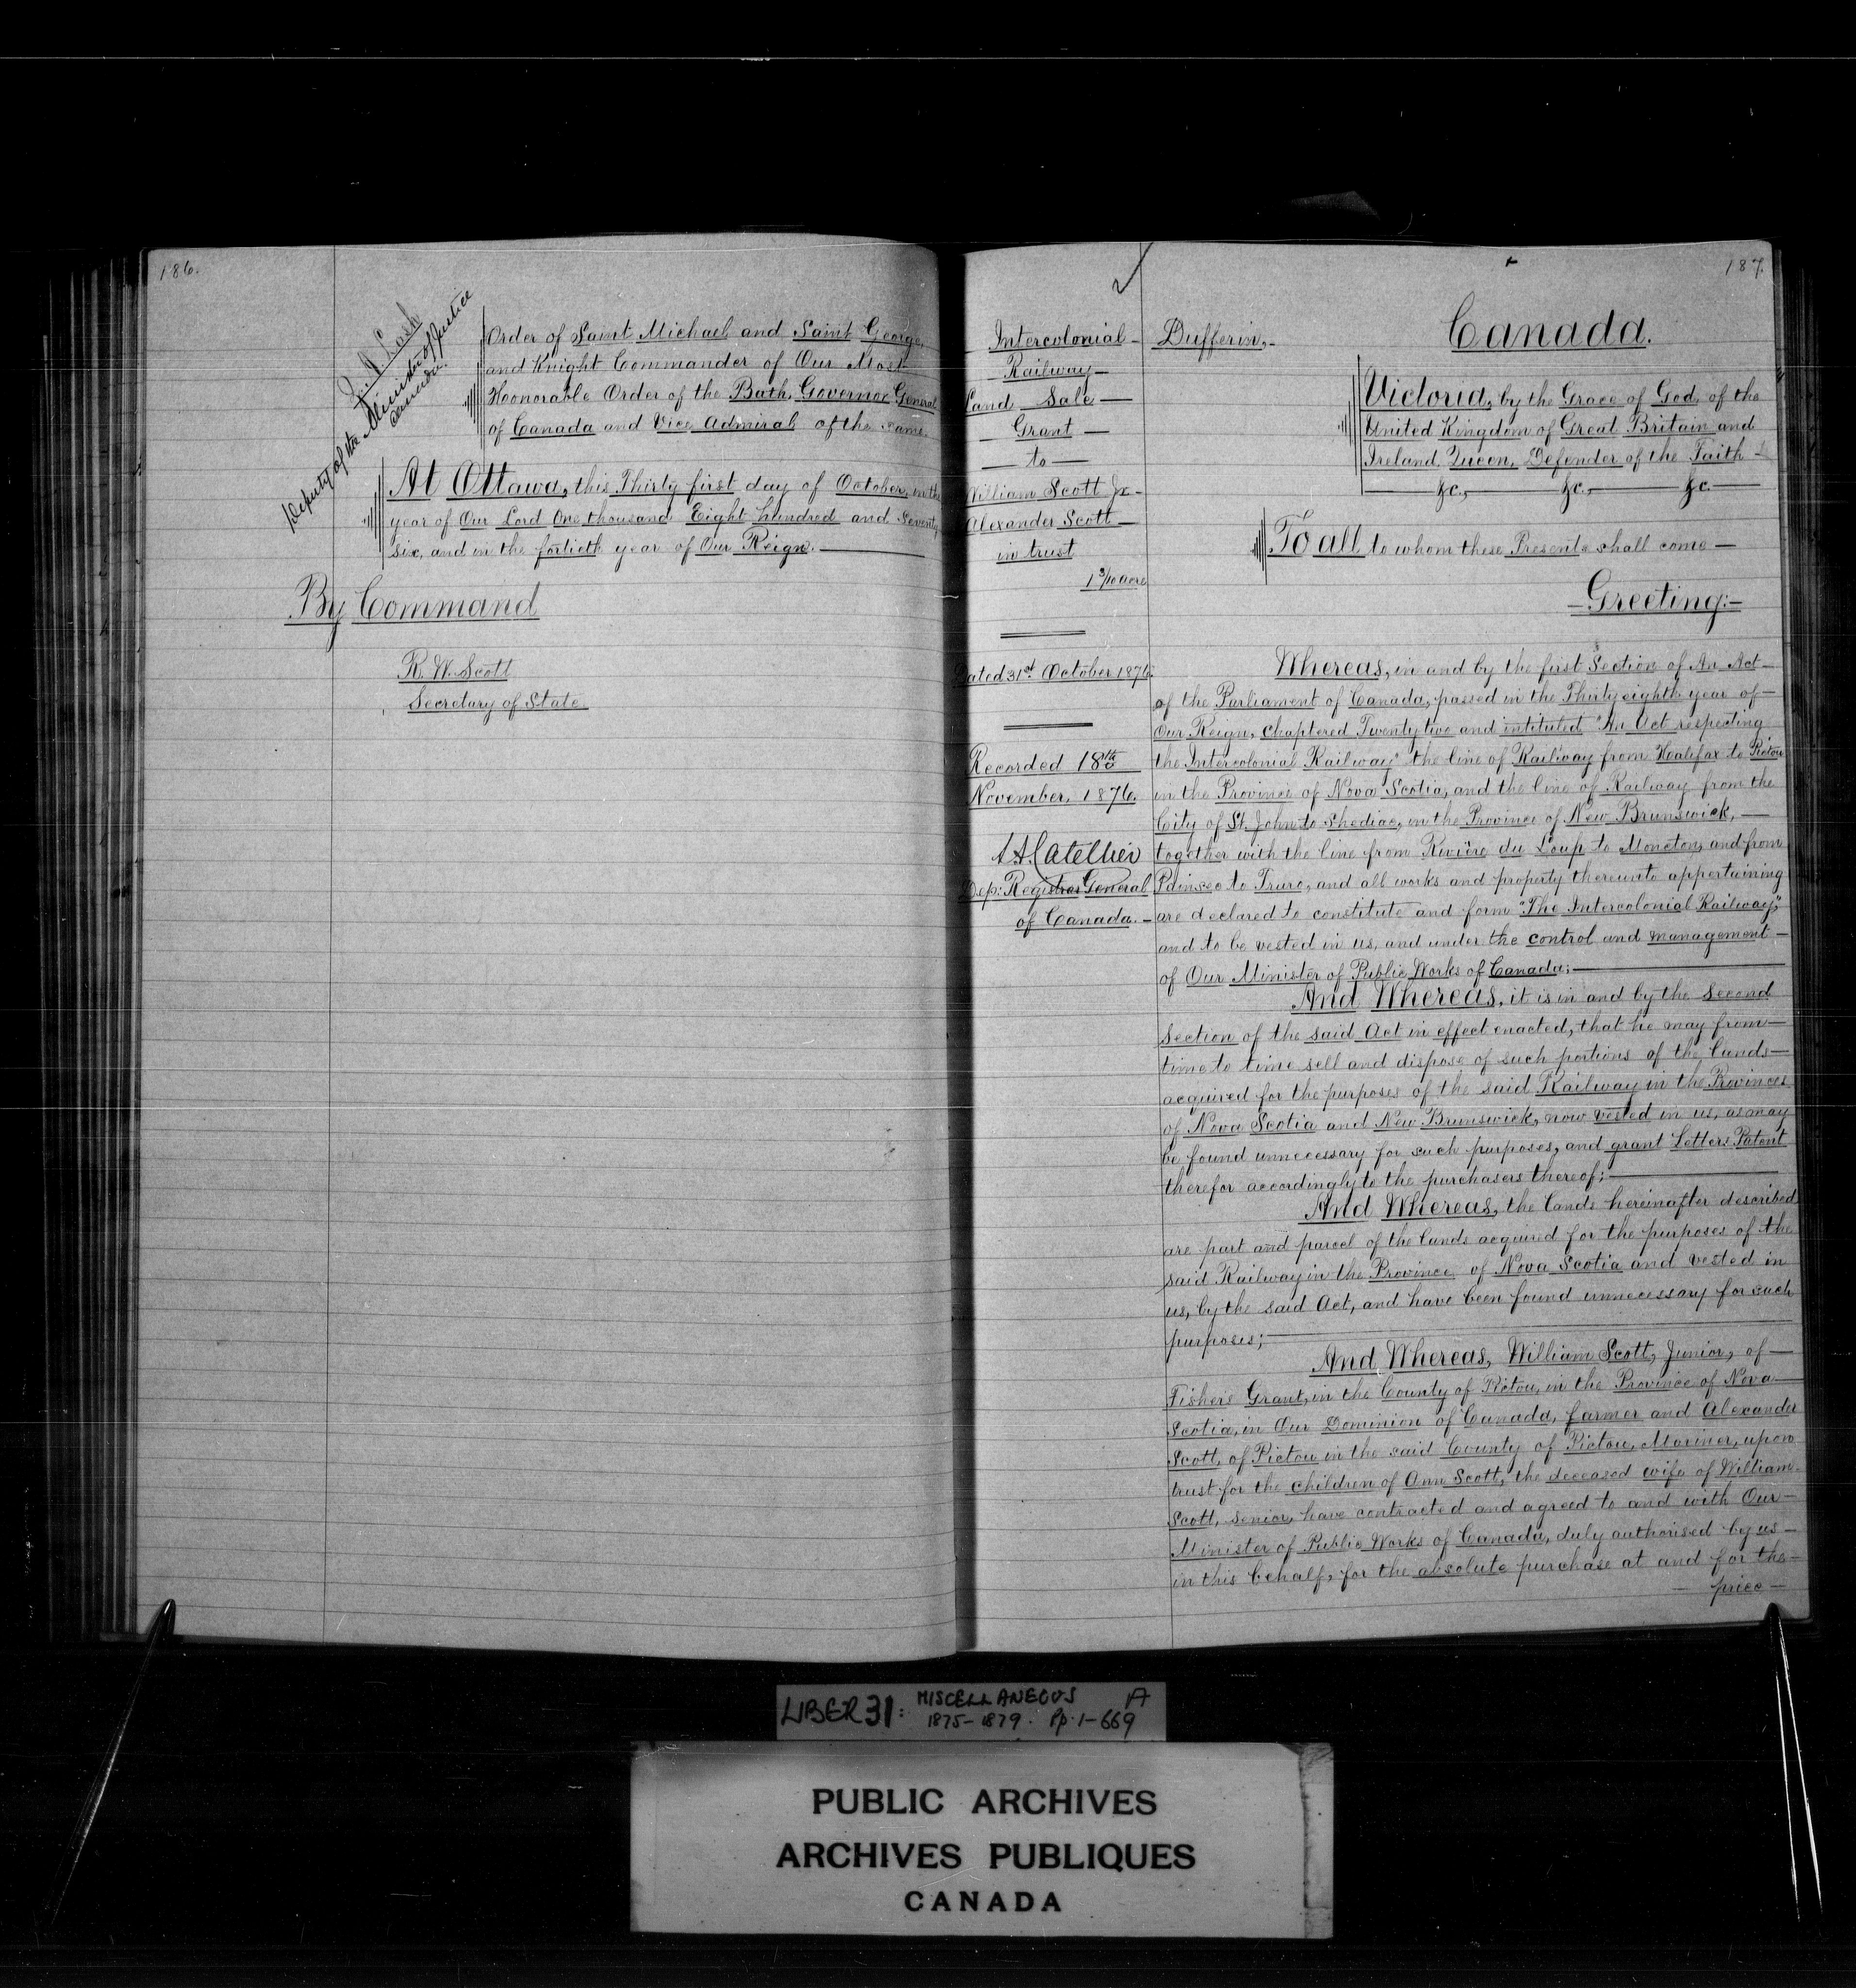 186.
Z. A. Lash
Deputy of the Minister of Justice
Canada.
Order of Saint Michael and Saint George,
and Knight Commander of Our Most
Honorable Order of the Bath, Governor General
of Canada and Vice Admiral of the same.
At Ottawa, this Thirty first day of October, in the
year of Our Lord One thousand Eight hundred and Seventy
six, and in the fortieth year of Our Reign.
By Command
R. W. Scott
Secretary of State
187.
Intercolonial
Railway
Land Sale
Grant
to
William Scott Jr.
Alexander Scott
in trust
1 3/10 acre
Dated 31st October 1876.
Recorded 18th
November, 1876.
Catellier
Dep: Registrar General
of Canada.
Dufferin,
Canada.
Victoria, by the Grace of God, of the
United Kingdom of Great Britain and
Ireland, Queen, Defender of the Faith
&c., &c., &c.
To all to whom these Presents shall come
Greeting:
Whereas, in and by the first Section of An Act
of the Parliament of Canada, passed in the Thirty eighth year of
Our Reign, Chaptered Twenty two and intituted "An Act respecting
the Intercolonial Railway" the line of Railway from Halifax to Pictou
in the Province of Nova Scotia, and the line of Railway from the
City of St. John to Shediac, in the Province of New Brunswick,
together with the line from Rivière du Loup to Moncton, and from
Painsec to Truro, and all works and property thereunto appertaining
are declared to constitute and form "The Intercolonial Railway,"
and to be vested in us, and under the control and management
of Our Minister of Public Works of Canada;
And Whereas, it is in and by the Second
Section of the said Act in effect enacted, that he may from
time to time sell and dispose of such portions of the lands
acquired for the purposes of the said Railway in the Provinces
of Nova Scotia and New Brunswick, now vested in us, as may
be found unnecessary for such purposes, and grant Letters Patent
therefor accordingly to the purchasers thereof;
And Whereas, the lands hereinafter described
are part and parcel of the lands acquired for the purposes of the
said Railway in the Province of Nova Scotia and vested in
us, by the said Act, and have been found unnecessary for such
purposes;
And Whereas, William Scott, Junior, of
Fishers Grant, in the County of Pictou, in the Province of Nova
Scotia, in Our Dominion of Canada, farmer and Alexander
Scott, of Pictou in the said County of Pictou, Mariner, upon
trust for the children of Ann Scott, the deceased wife of William
Scott, senior, have contracted and agreed to and with Our
Minister of Public Works of Canada, duly authorised by us
in this behalf, for the absolute purchase at and for the
price
LIBER 31: MISCELLANEOUS
1875-1879. Pp. 1-669
PUBLIC ARCHIVES
ARCHIVES PUBLIQUES
CANADA